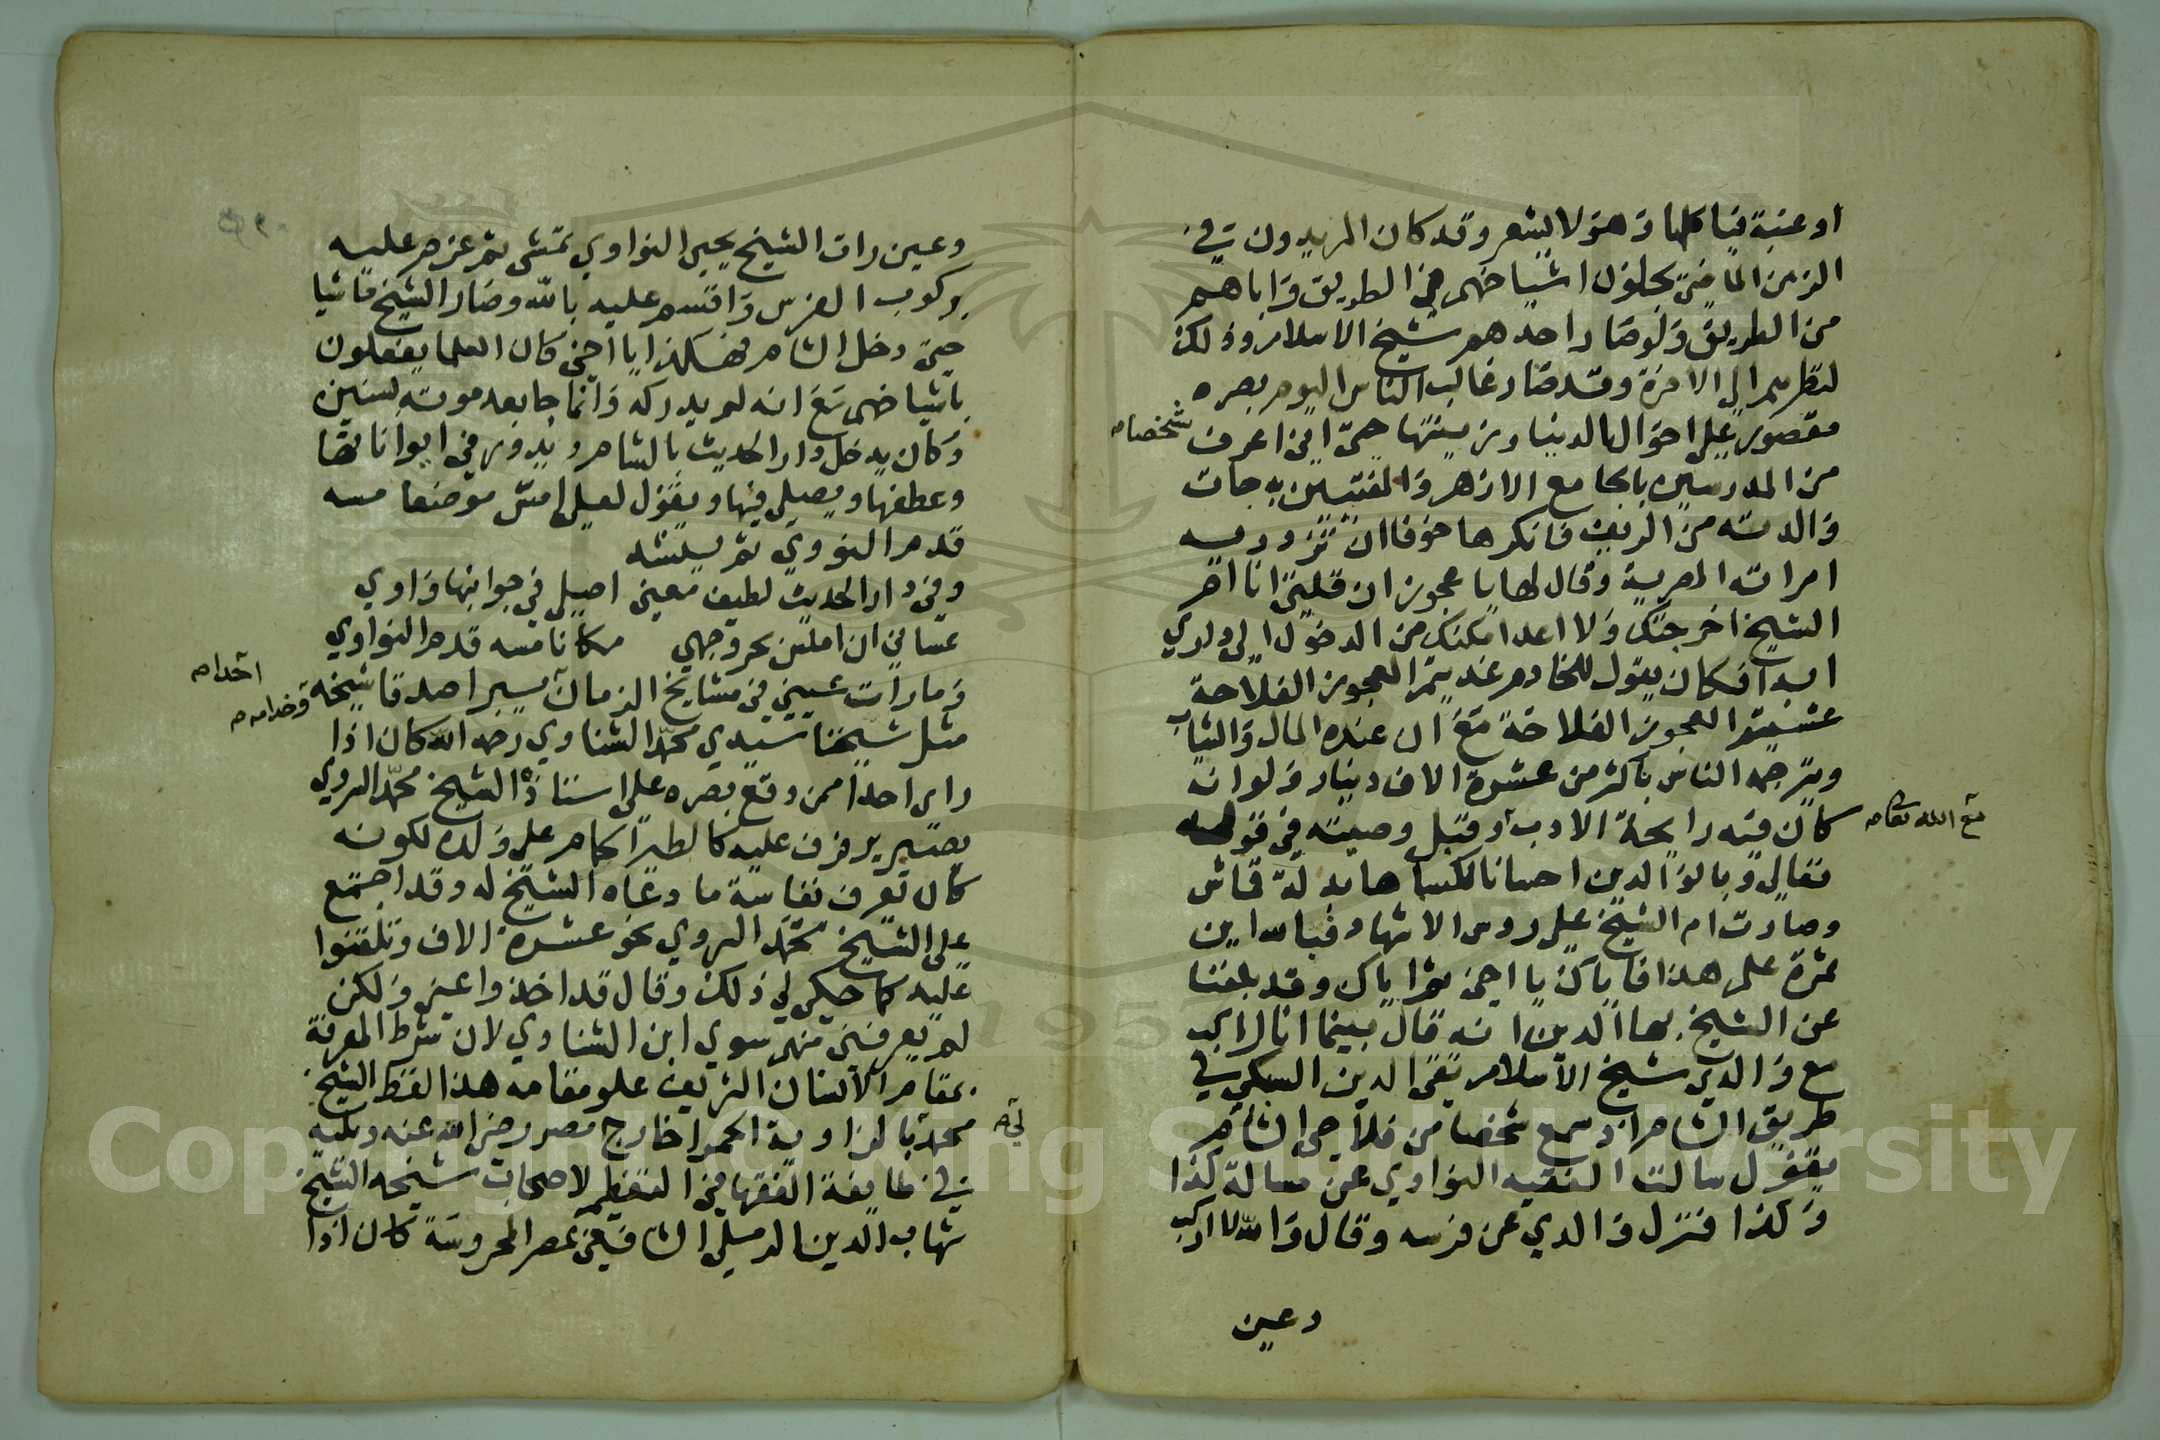 او عنبة فياكلها وهو لا يشعر وقد كان المريدون في
الزمن الماضي يجلون اشياخهم في الطريق واباهم
من الطريق ولو صار احدهم شيخ الاسلام وذلك
لنظرهم الى الاخرة وقد صار غالب الناس اليوم بصره
مقصور علي احوال الدنيا وزينتها حتي اني اعرف شخصا
من المدرسين بالجامع الازهر والمفتين به جات
والدته من الريف فانكرها خوفا ان تزدريه
امراته المصرية وقال لها يا عجوز ان قلتي انا ام
الشيخ اخرجتك ولا اعد امكنك من الدخول الي داري
ابدا فكان يقول للخادم غديتم العجوز الفلاحة
عشيتم العجوز الفلاحة مع ان عنده المال والثياب
وترجمه الناس باكثر من عشرة الاف دينار ولو انه
كان فيه رايحة الادب مع الله تعا وقبل وصيته في قوله
تعالي وبالوالدين احسانا لكساها بدلة قماش
وصارت ام الشيخ علي روس الاشهاد فباسد اين
ثمرة علم هذا فاياك يا اخي ثم اياك وقد بلغنا
عن الشيخ بها الدين انه قال بينما انا راكب
مع والدي شيخ الاسلام تقي الدين السبكي في
طريق الشام اذ سمع شخصا من فلاحي الشام
يقول سالت الفقيه النواوي عن مسالة كذا
وكذا فنزل والدي عن فرسه وقال والله لا اركب
وعين
وعين رات الشيخ يحيي النواوي تمشي ثم عزم عليه
بركوب الفرس واقسم عليه بالله وصار الشيخ ماشيا
حتي دخل الشام فهكذا يا اخي كان العلما يفعلون
باشياخهم مع انه لم يدركه وانما جا بعد موته بسنين
وكان يدخل دار الحديث بالشام ويدور في ايواناتها
وعطفها ويصلي فيها ويقول لعلي امس موضعا مسه
قدم النووي ثم ينشد
وفي دار الحديث لطيف معني اصلي في جوانبها واوي
عساني ان امس بحر وجهي مكانا مسه قدم النواوي
وما رات عيني في مشايخ الزمان يبر اصدقا شيخه وخدامه احدا
مثل شيخنا سيدي محمد الشناوي رحمه الله كان اذا
راي احدا ممن وقع بصره علي استاذه الشيخ محمد السروي
يصير يرفرف عليه كالطير الحام على ولده لكونه
كان تعرف نفاسة ما دعاه الشيخ له وقد اجتمع
علي الشيخ محمد السروي نحو عشرة الاف وتلقنوا
عليه كما حكي لي ذلك وقال قد اخذوا عني ولكن
لم يعرفني منهم سوي ابن الشناوي لان شرط المعرفة
بمقام الانسان الشريف علو مقامه هذا لفظ الشيخ
محمد لي بالزاوية الحمرا خارج مصر رضي الله عنه ويليه
في طايفة الفقها في التعظيم لاصحاب شيخه الشيخ
شهاب الدين الرملي الشافعي بمصر المحروسة كان اذا